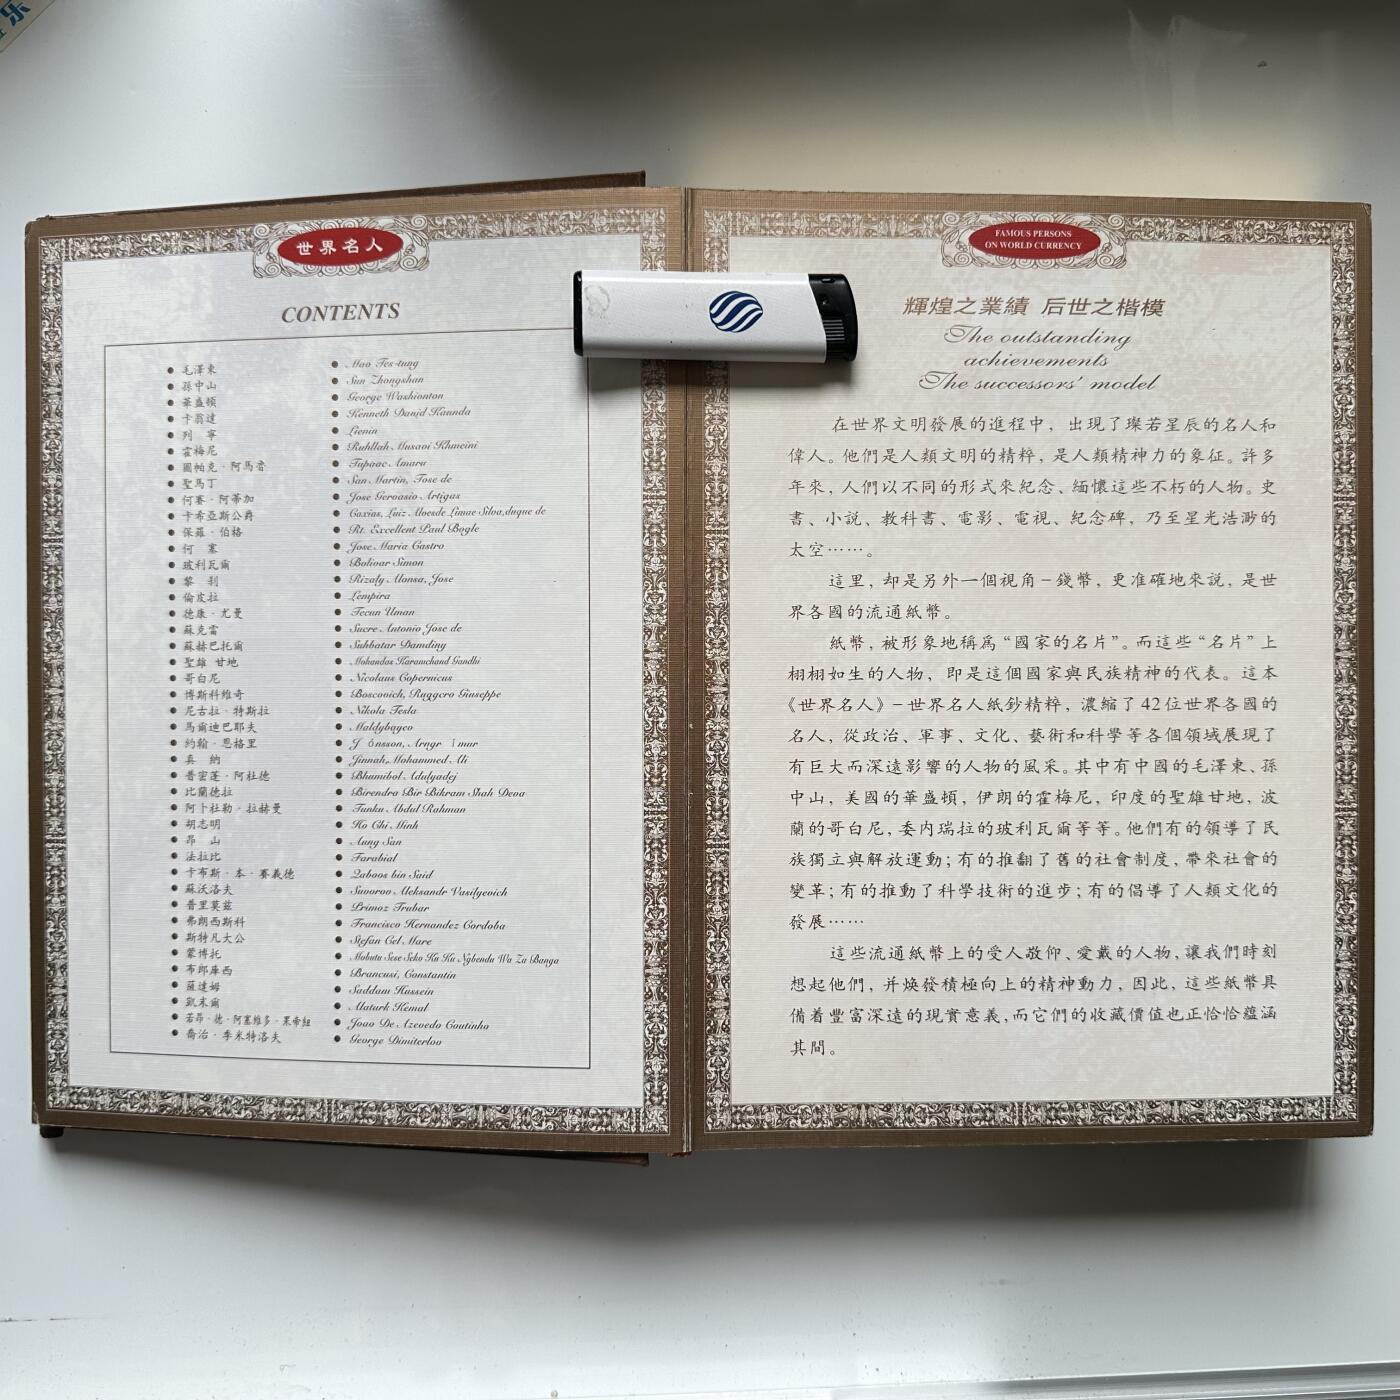 乐
世界名人
CONTENTS
毛澤東
孫中山
華盛頓
卡翁達
列 寧
霍梅尼
圖帕克·阿馬魯
聖馬丁
何賽·阿蒂加
卡希亞斯公爵
保羅·伯格
何 塞
玻利瓦爾
黎 刹
倫皮拉
德康·尤曼
蘇克雷
蘇赫巴托爾
聖雄 甘地
哥白尼
博斯科維奇
尼古拉·特斯拉
馬爾迪巴耶夫
約翰·恩格里
真 納
普密蓬·阿杜德
比蘭德拉
阿卜杜勒·拉赫曼
胡志明
昂 山
法拉比
卡布斯·本·賽義德
蘇沃洛夫
普里莫兹
弗朗西斯科
斯特凡大公
蒙博托
布郎庫西
薩達姆
凱末爾
若昂·德·阿塞維多·果帝紐
喬治·季米特洛夫
Mao Tes-tung
Sun Zhongshan
George Washionton
Kenneth Danjd Kaunda
Lienin
Ruhllah Musavi Khmeini
Tupaac Amaru
San Martin, Tose de
Jose Gervasio Artigas
Caxias, Luiz Alvesde Limae Silva,duque de
Rt. Excellent Paul Bogle
Jose Maria Castro
Bolivar Simon
Rizaly Alonsa, Jose
Lempira
Tecun Uman
Sucre Antonio Jose de
Suhbatar Damding
Mohandas Karamchand Gandhi
Nicolaus Copernicus
Boscovich, Ruggcro Giuseppe
Nikola Tesla
Maldybayev
J ónsson, Arngr ímur
Jinnah, Mohammed Ali
Bhumibol Adulyadej
Birendra Bir Bikram Shah Deva
Tunku Abdul Rahman
Ho Chi Minh
Aung San
Farabial
Qaboos bin Said
Suvorov Aleksandr Vasilyevich
Primoz Trubar
Francisco Hernandez Cordoba
Stefan Cel Mare
Mobutu Sese Seko Ku Ku Ngbendu Wa Za Banga
Brancusi, Constantin
Saddam Hussein
Ataturk Kemal
Joao De Azevedo Coutinho
George Dimiterloo
FAMOUS PERSONS
ON WORLD CURRENCY
輝煌之業績 后世之楷模
The outstanding
achievements
The successors' model
在世界文明發展的進程中，出現了璨若星辰的名人和
偉人。他們是人類文明的精粹，是人類精神力的象征。許多
年來，人們以不同的形式來紀念、緬懷這些不朽的人物。史
書、小說、教科書、電影、電視、紀念碑，乃至星光浩渺的
太空……。
這里，却是另外一個視角－錢幣，更准確地來説，是世
界各國的流通紙幣。
紙幣，被形象地稱爲“國家的名片”。而這些“名片”上
栩栩如生的人物，即是這個國家與民族精神的代表。這本
《世界名人》－世界名人紙鈔精粹，濃縮了42位世界各國的
名人，從政治、軍事、文化、藝術和科學等各個領域展現了
有巨大而深遠影響的人物的風采。其中有中國的毛澤東、孫
中山，美國的華盛頓，伊朗的霍梅尼，印度的聖雄甘地，波
蘭的哥白尼，委内瑞拉的玻利瓦爾等等。他們有的領導了民
族獨立與解放運動；有的推翻了舊的社會制度，帶來社會的
變革；有的推動了科學技術的進步；有的倡導了人類文化的
發展……
這些流通紙幣上的受人敬仰、愛戴的人物，讓我們時刻
想起他們，并焕發積極向上的精神動力，因此，這些紙幣具
備着豐富深遠的現實意義，而它們的收藏價值也正恰恰蘊涵
其間。